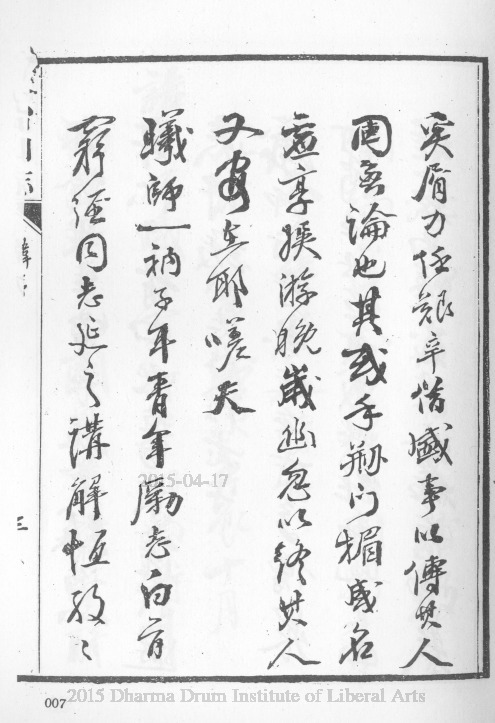 奚屑力任艱辛借盛事以傳其人
固無論也其或手刱門楣成名
享游晚歲幽忽以終其人
又安在耶嗟夫
曦師一衲子耳青年勵志白首
窮經同志延之講解恆孜々
志
三
007
2015-04-17
2015 Dharma Drum Institute of Liberal Arts